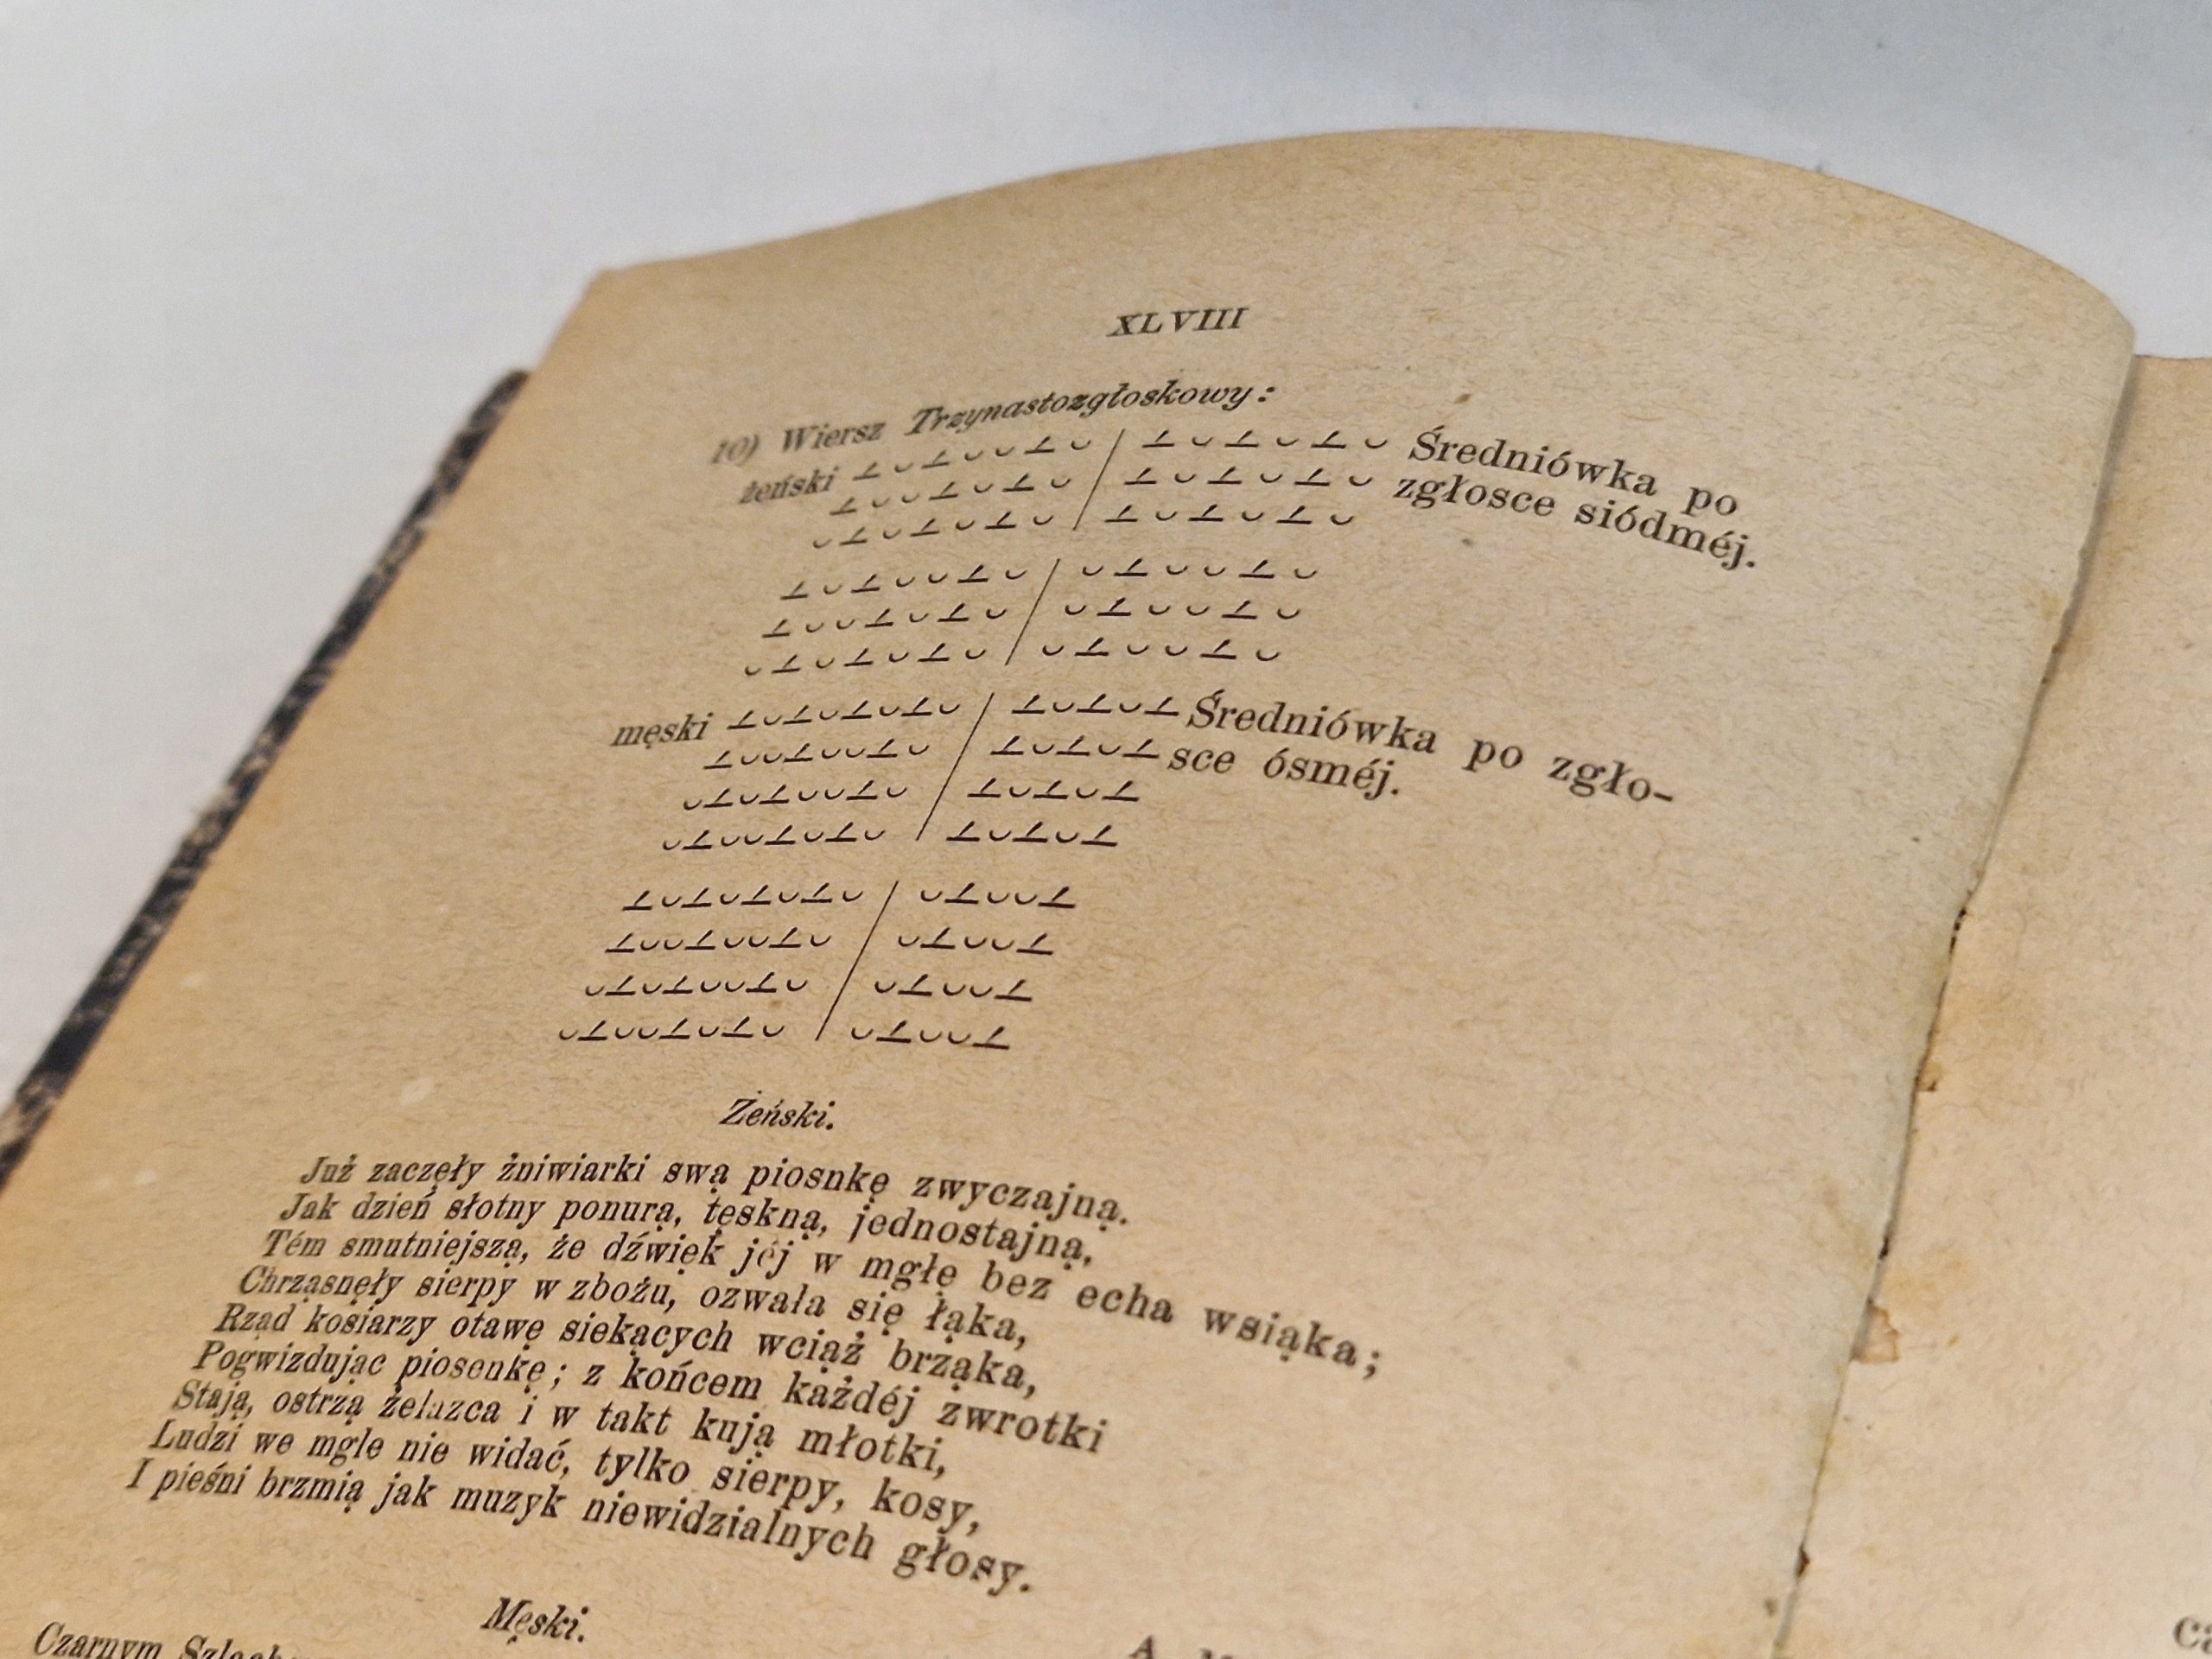 XLVIII
10) Wiersz Trzynastozgłoskowy:
żeński ⊥ ᴗ ⊥ ᴗ ᴗ ⊥ ᴗ / ⊥ ᴗ ⊥ ᴗ ⊥ ᴗ Średniówka po
⊥ ᴗ ᴗ ⊥ ᴗ ⊥ ᴗ / ⊥ ᴗ ⊥ ᴗ ⊥ ᴗ zgłosce siódméj.
ᴗ ⊥ ᴗ ⊥ ᴗ ⊥ ᴗ / ⊥ ᴗ ⊥ ᴗ ⊥ ᴗ
⊥ ᴗ ⊥ ᴗ ᴗ ⊥ ᴗ / ᴗ ⊥ ᴗ ᴗ ⊥ ᴗ
⊥ ᴗ ᴗ ⊥ ᴗ ⊥ ᴗ / ᴗ ⊥ ᴗ ᴗ ⊥ ᴗ
ᴗ ⊥ ᴗ ⊥ ᴗ ⊥ ᴗ / ᴗ ⊥ ᴗ ᴗ ⊥ ᴗ
męski ⊥ ᴗ ⊥ ᴗ ⊥ ᴗ ⊥ ᴗ / ⊥ ᴗ ⊥ ᴗ ⊥ Średniówka po zgło-
⊥ ᴗ ᴗ ⊥ ᴗ ᴗ ⊥ ᴗ / ⊥ ᴗ ⊥ ᴗ ⊥ sce ósméj.
ᴗ ⊥ ᴗ ⊥ ᴗ ᴗ ⊥ ᴗ / ⊥ ᴗ ⊥ ᴗ ⊥
ᴗ ⊥ ᴗ ᴗ ⊥ ᴗ ⊥ ᴗ / ⊥ ᴗ ⊥ ᴗ ⊥
⊥ ᴗ ⊥ ᴗ ⊥ ᴗ ⊥ ᴗ / ᴗ ⊥ ᴗ ᴗ ⊥
⊥ ᴗ ᴗ ⊥ ᴗ ᴗ ⊥ ᴗ / ᴗ ⊥ ᴗ ᴗ ⊥
ᴗ ⊥ ᴗ ⊥ ᴗ ᴗ ⊥ ᴗ / ᴗ ⊥ ᴗ ᴗ ⊥
ᴗ ⊥ ᴗ ᴗ ⊥ ᴗ ⊥ ᴗ / ᴗ ⊥ ᴗ ᴗ ⊥
Żeński.
Już zaczęły żniwiarki swą piosnkę zwyczajną.
Jak dzień słotny ponurą, tęskną, jednostajną,
Tém smutniejszą, że dźwięk jéj w mgłę bez echa wsiąka;
Chrząsnęły sierpy w zbożu, ozwała się łąka,
Rząd kosiarzy otawę siekących wciąż brząka,
Pogwizdując piosenkę; z końcem każdéj zwrotki
Stają, ostrzą żelazca i w takt kują młotki,
Ludzi we mgle nie widać, tylko sierpy, kosy,
I pieśni brzmią jak muzyk niewidzialnych głosy.
Męski.
Czarnym